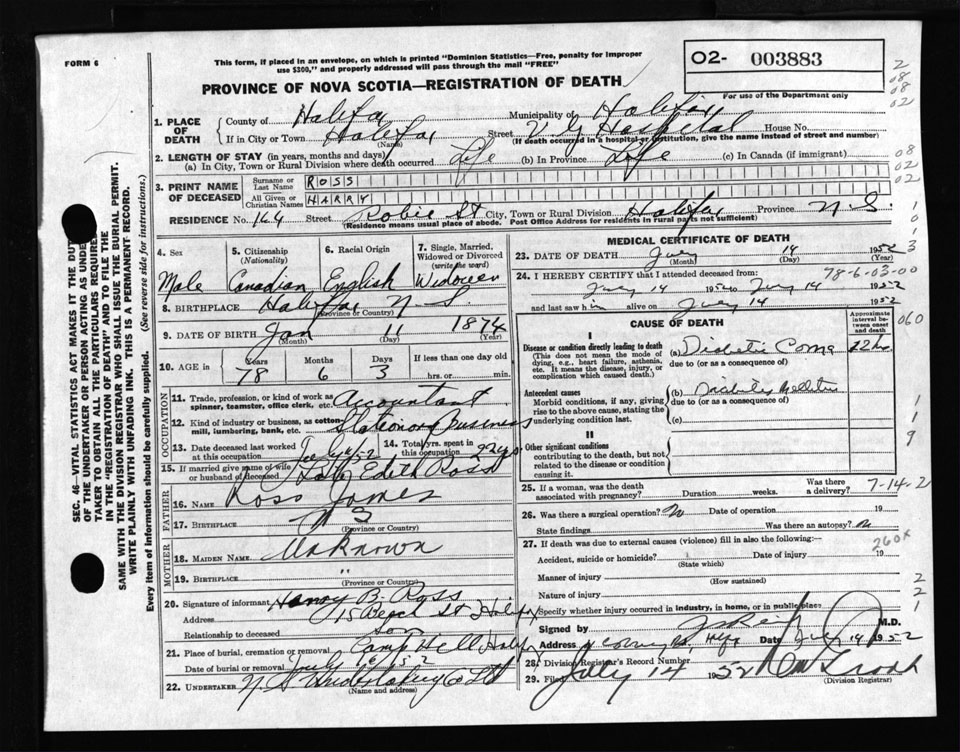 FORM 6
This form, if placed in an envelope, on which is printed "Dominion Statistics—Free, penalty for improper
use $300," and properly addressed will pass through the mail "FREE"
O2- 003883
For use of the Department only
PROVINCE OF NOVA SCOTIA—REGISTRATION OF DEATH
1. PLACE OF DEATH
County of Halifax Municipality of Halifax
If in City or Town Halifax Street V G Hospital House No.
(Name) (If death occurred in a hospital or institution, give the name instead of street and number)
2. LENGTH OF STAY (in years, months and days)
(a) In City, Town or Rural Division where death occurred Life (b) In Province Life (c) In Canada (if immigrant)
3. PRINT NAME OF DECEASED
Surname or Last Name ROSS
All Given or Christian Names HARRY
RESIDENCE No. 164 Street Robie St City, Town or Rural Division Halifax Province N.S.
(Residence means usual place of abode. Post Office Address for residents in rural parts not sufficient)
4. Sex 5. Citizenship (Nationality) 6. Racial Origin 7. Single, Married, Widowed or Divorced (write the word)
Male Canadian English Widower
8. BIRTHPLACE Halifax N S
(Province or Country)
9. DATE OF BIRTH Jan 11 1874
(Month) (Day) (Year)
10. AGE in Years Months Days If less than one day old
78 6 3 hrs. or min.
OCCUPATION
11. Trade, profession, or kind of work as spinner, teamster, office clerk, etc. Accountant
12. Kind of industry or business, as cotton mill, lumbering, bank, etc. Stationary Business
13. Date deceased last worked at this occupation 14. Total yrs. spent in this occupation
15. If married give name of wife or husband of deceased Edith Ross
FATHER
16. NAME Ross James
17. BIRTHPLACE N S
(Province or Country)
MOTHER
18. MAIDEN NAME Unknown
19. BIRTHPLACE "
(Province or Country)
20. Signature of informant B. Ross
Address St Halifax
Relationship to deceased son
21. Place of burial, cremation or removal Camp Hill Halifax
Date of burial or removal July 16/52
22. UNDERTAKER N.S. Undertaking Co Ltd
(Name and address)
MEDICAL CERTIFICATE OF DEATH
23. DATE OF DEATH July 14 1952
(Month) (Day) (Year)
78-6-03-00
24. I HEREBY CERTIFY that I attended deceased from:
July 14 1952 to July 14 1952
and last saw him alive on July 14 1952
CAUSE OF DEATH
Approximate interval between onset and death
I
Disease or condition directly leading to death
(This does not mean the mode of dying, e.g., heart failure, asthenia, etc. It means the disease, injury, or complication which caused death.)
(a) Diabetic Coma 12 hrs
due to (or as a consequence of)
Antecedent causes
Morbid conditions, if any, giving rise to the above cause, stating the underlying condition last.
(b) Diabetes Mellitus
due to (or as a consequence of)
(c)
II
Other significant conditions
contributing to the death, but not related to the disease or condition causing it.
25. If a woman, was the death associated with pregnancy? Duration weeks. Was there a delivery?
7-14-2
26. Was there a surgical operation? No Date of operation 19
State findings Was there an autopsy? No
27. If death was due to external causes (violence) fill in also the following:—
260X
Accident, suicide or homicide? Date of injury 19
(State which)
Manner of injury
(How sustained)
Nature of injury
Specify whether injury occurred in industry, in home, or in public place
Signed by M.D.
Address Date July 14 1952
28. Division Registrar's Record Number
29. Filed July 14 1952
(Division Registrar)
SEC. 46—VITAL STATISTICS ACT MAKES IT THE
OF THE UNDERTAKER OR PERSON ACTING AS
TAKER TO OBTAIN ALL THE PARTICULARS REQUIRED
IN THE "REGISTRATION OF DEATH" AND TO FILE THE
SAME WITH THE DIVISION REGISTRAR WHO SHALL ISSUE THE BURIAL PERMIT.
WRITE PLAINLY WITH UNFADING INK. THIS IS A PERMANENT RECORD.
Every item of information should be carefully supplied. (See reverse side for instructions.)
2
08
08
02
08
02
02
1
0
1
3
060
1
1
9
2
2
1